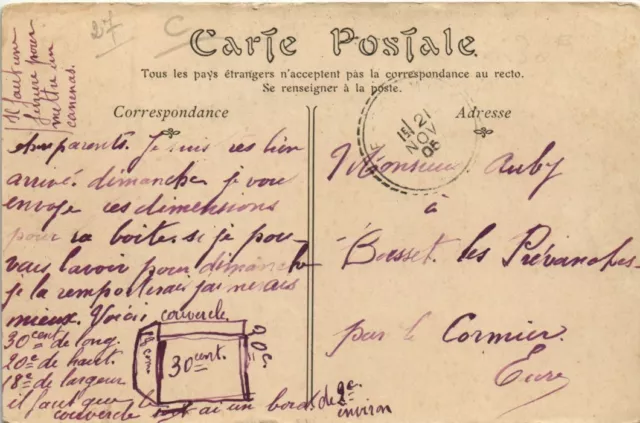 27
C
Carte Postale
Tous les pays étrangers n'acceptent pas la correspondance au recto.
Se renseigner à la poste.
Correspondance
Adresse
Il faut une
serrure pour
mettre un
cadenas.
Chers parents. Je suis très bien
arrivé dimanche je vous
envoye les dimensions
pour la boite. si je pou-
vais lavoir pour dimanche
je la remporterais j'aimerais
mieux. Voici
30 cent de long.
20 c de haut.
18 c de largeur
il faut que le
couvercle ai un bord de 2 c.
environ
couvercle
18 cm
30 cent.
20 c.
15 / 21
NOV
05
Monsieur Auby
à
Boisset. les Prévanches.
par le Cormier.
Eure